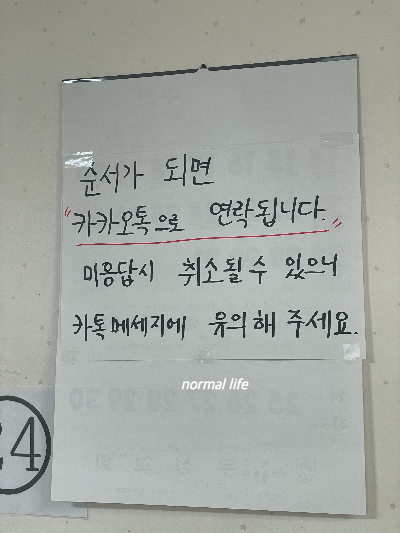 순서가 되면
"카카오톡으로 연락됩니다."
미응답시 취소될 수 있으니
카톡 메세지에 유의해 주세요.
normal life
24